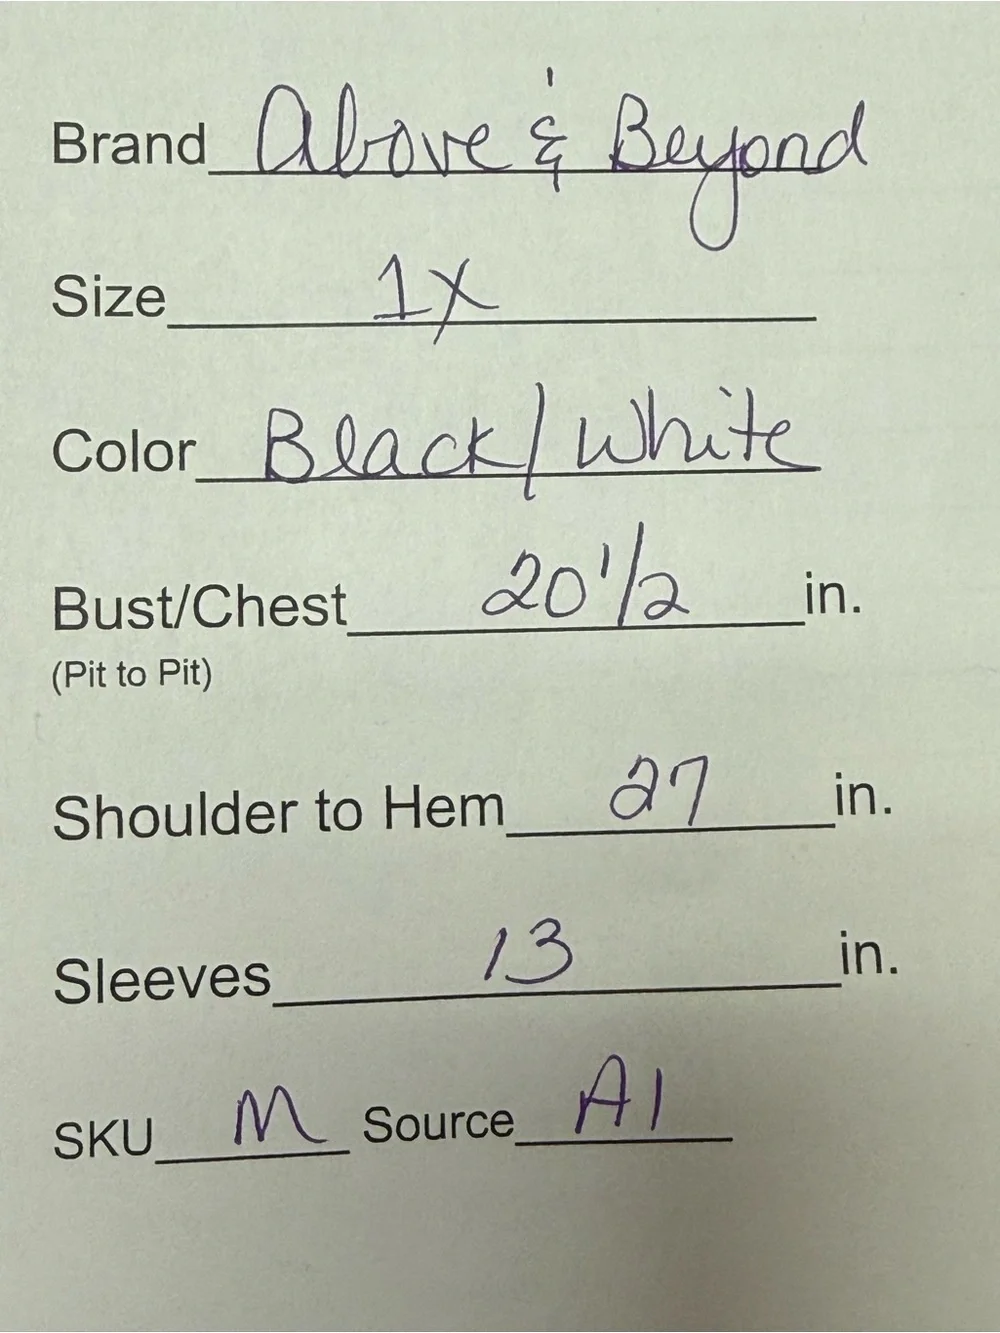 Brand Above & Beyond
Size 1X
Color Black/White
Bust/Chest 20 1/2 in.
(Pit to Pit)
Shoulder to Hem 27 in.
Sleeves 13 in.
SKU M Source A1